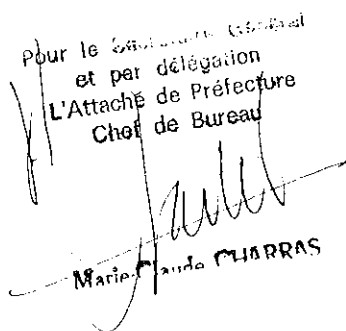 Pour le Secrétaire Général
et par délégation
L'Attaché de Préfecture
Chef de Bureau
Marie-Claude CHARRAS